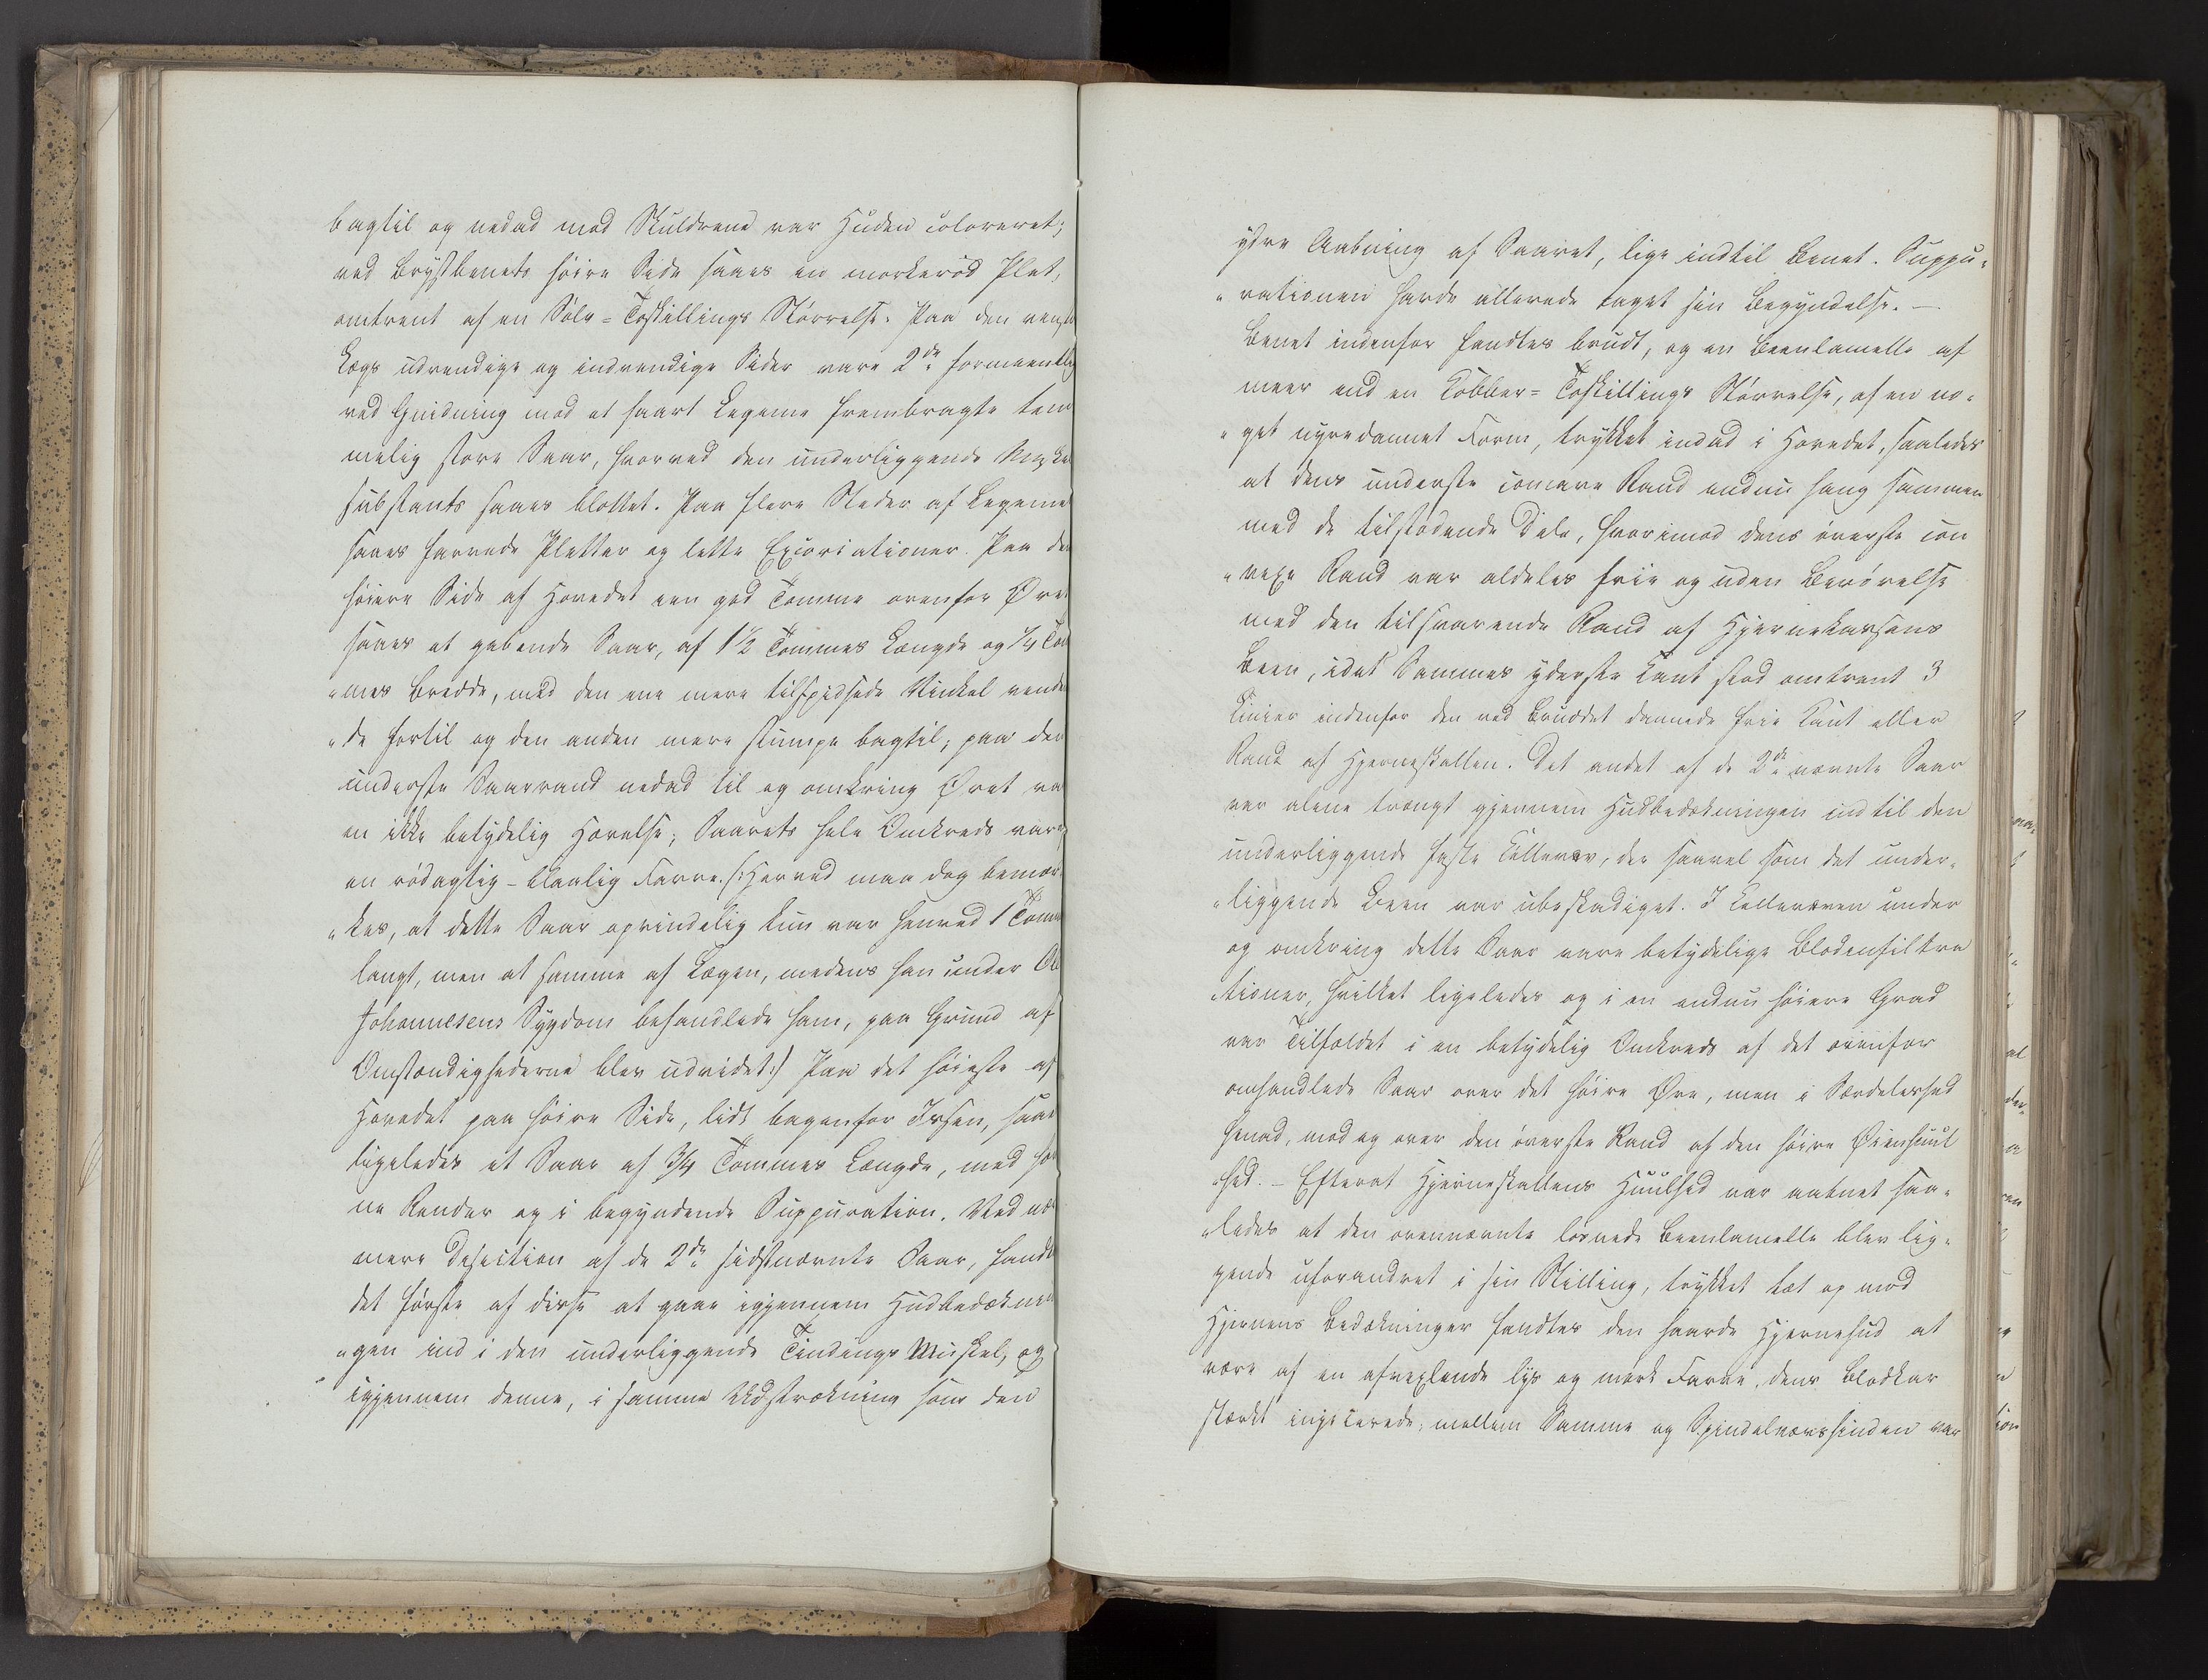 bagtil og nedad mod Skuldrene var Huden coloreret;
ved Brystbenets høire Side saaes en mørkerød Plet,
omtrent af en Sølv=Toskillings Størrelse. Paa den venst
Lægs udvendige og indvendige Sider vare 2de formeentlig
ved Gnidning mod et haart Legeme frembragte tem
melig store Saar, hvorved den underliggende Muskel
substants saaes blottet. Paa flere Steder af Legeme
saaes farvede Pletter og lette Excoriationer. Paa den
høiere Side af Hovedet een god Tomme ovenfor Øre
saaes et gabende Saar, af 1½ Tommes Længde og ¼ Tom
„mes Bredde, med den ene mere tilspidsede Vinkel vende
„de fortil og den anden mere stumpe bagtil; paa den
underste Saarrand nedad til og omkring Øret va
en ikke betydelig Hævelse; Saarets hele Omkreds var
en rødagtig-blaalig Farve. (:Herved maa dog bemær
„kes, at dette Saar oprindelig kun var henved 1 Tomm
langt, men at samme af Lægen, medens han under Ol
Johannesens Sygdom behandlede ham, paa Grund af
Omstændighederne blev udvidet:) Paa det høieste af
Hovedet paa høire Side, lidt bagenfor Issen, saae
ligeledes et Saar af ¾ Tommes Længde, med
ne Rander og i begyndende Suppuration. Ved næ
mere Desection af de 2de sidstnævnte Saar, fandt
det første af disse at gaae igjennem Hudbedækni
„gen ind i den underliggende Tindings Muskel, og
igjennem denne, i samme Udstrækning som den
ydre Aabning af Saaret, lige indtil Benet. Suppu„
„rationen havde allerede taget sin Begyndelse. —
Benet indenfor fandtes brudt, og en Beenlamelle af
meer end en Kobber=Toskillings Størrelse, af en no„
„get nyredannet Form, trykket indad i Hovedet, saaledes
at dens underste concave Rand endnu hang sammen
med de tilstødende Dele, hvorimod dens øverste con
„vexe Rand var aldeles frie og uden Berørelse
med den tilsvarende Rand af Hjernekassens
Been, idet Sammes yderste Kant stod omtrent 3
Linier indenfor den ved Bruddet dannede frie Kant eller
Rand af Hjerneskallen. Det andet af de 2de nævnte Saar
var alene trængt gjennem Hudbedækningen ind til den
underliggende faste Cellevæv, der saavel som det under„
„liggende Been var ubeskadiget. I Cellevæven under
og omkring dette Saar vare betydelige Blodinfiltra
„tioner, hvilket ligeledes og i en endnu høiere Grad
var Tilfældet i en betydelig Omkreds af det ovenfor
omhandlede Saar over det høire Øre, men i Særdeleshed
henad, mod og over den øverste Rand af den høire Øienhuul
„hed. – Efterat Hjerneskallens Huulhed var aabnet saa„
„ledes at den ovennævnte løsnede Beenlamelle blev lig„
gende uforandret i sin Stilling, trykket tæt op mod
Hjernens Bedækninger fandtes den haarde Hjernehud at
være af en afvexlende lys og mørk Farve, dens Blodkar
stærkt injicerede; mellem Samme og Spindelvævshinden var